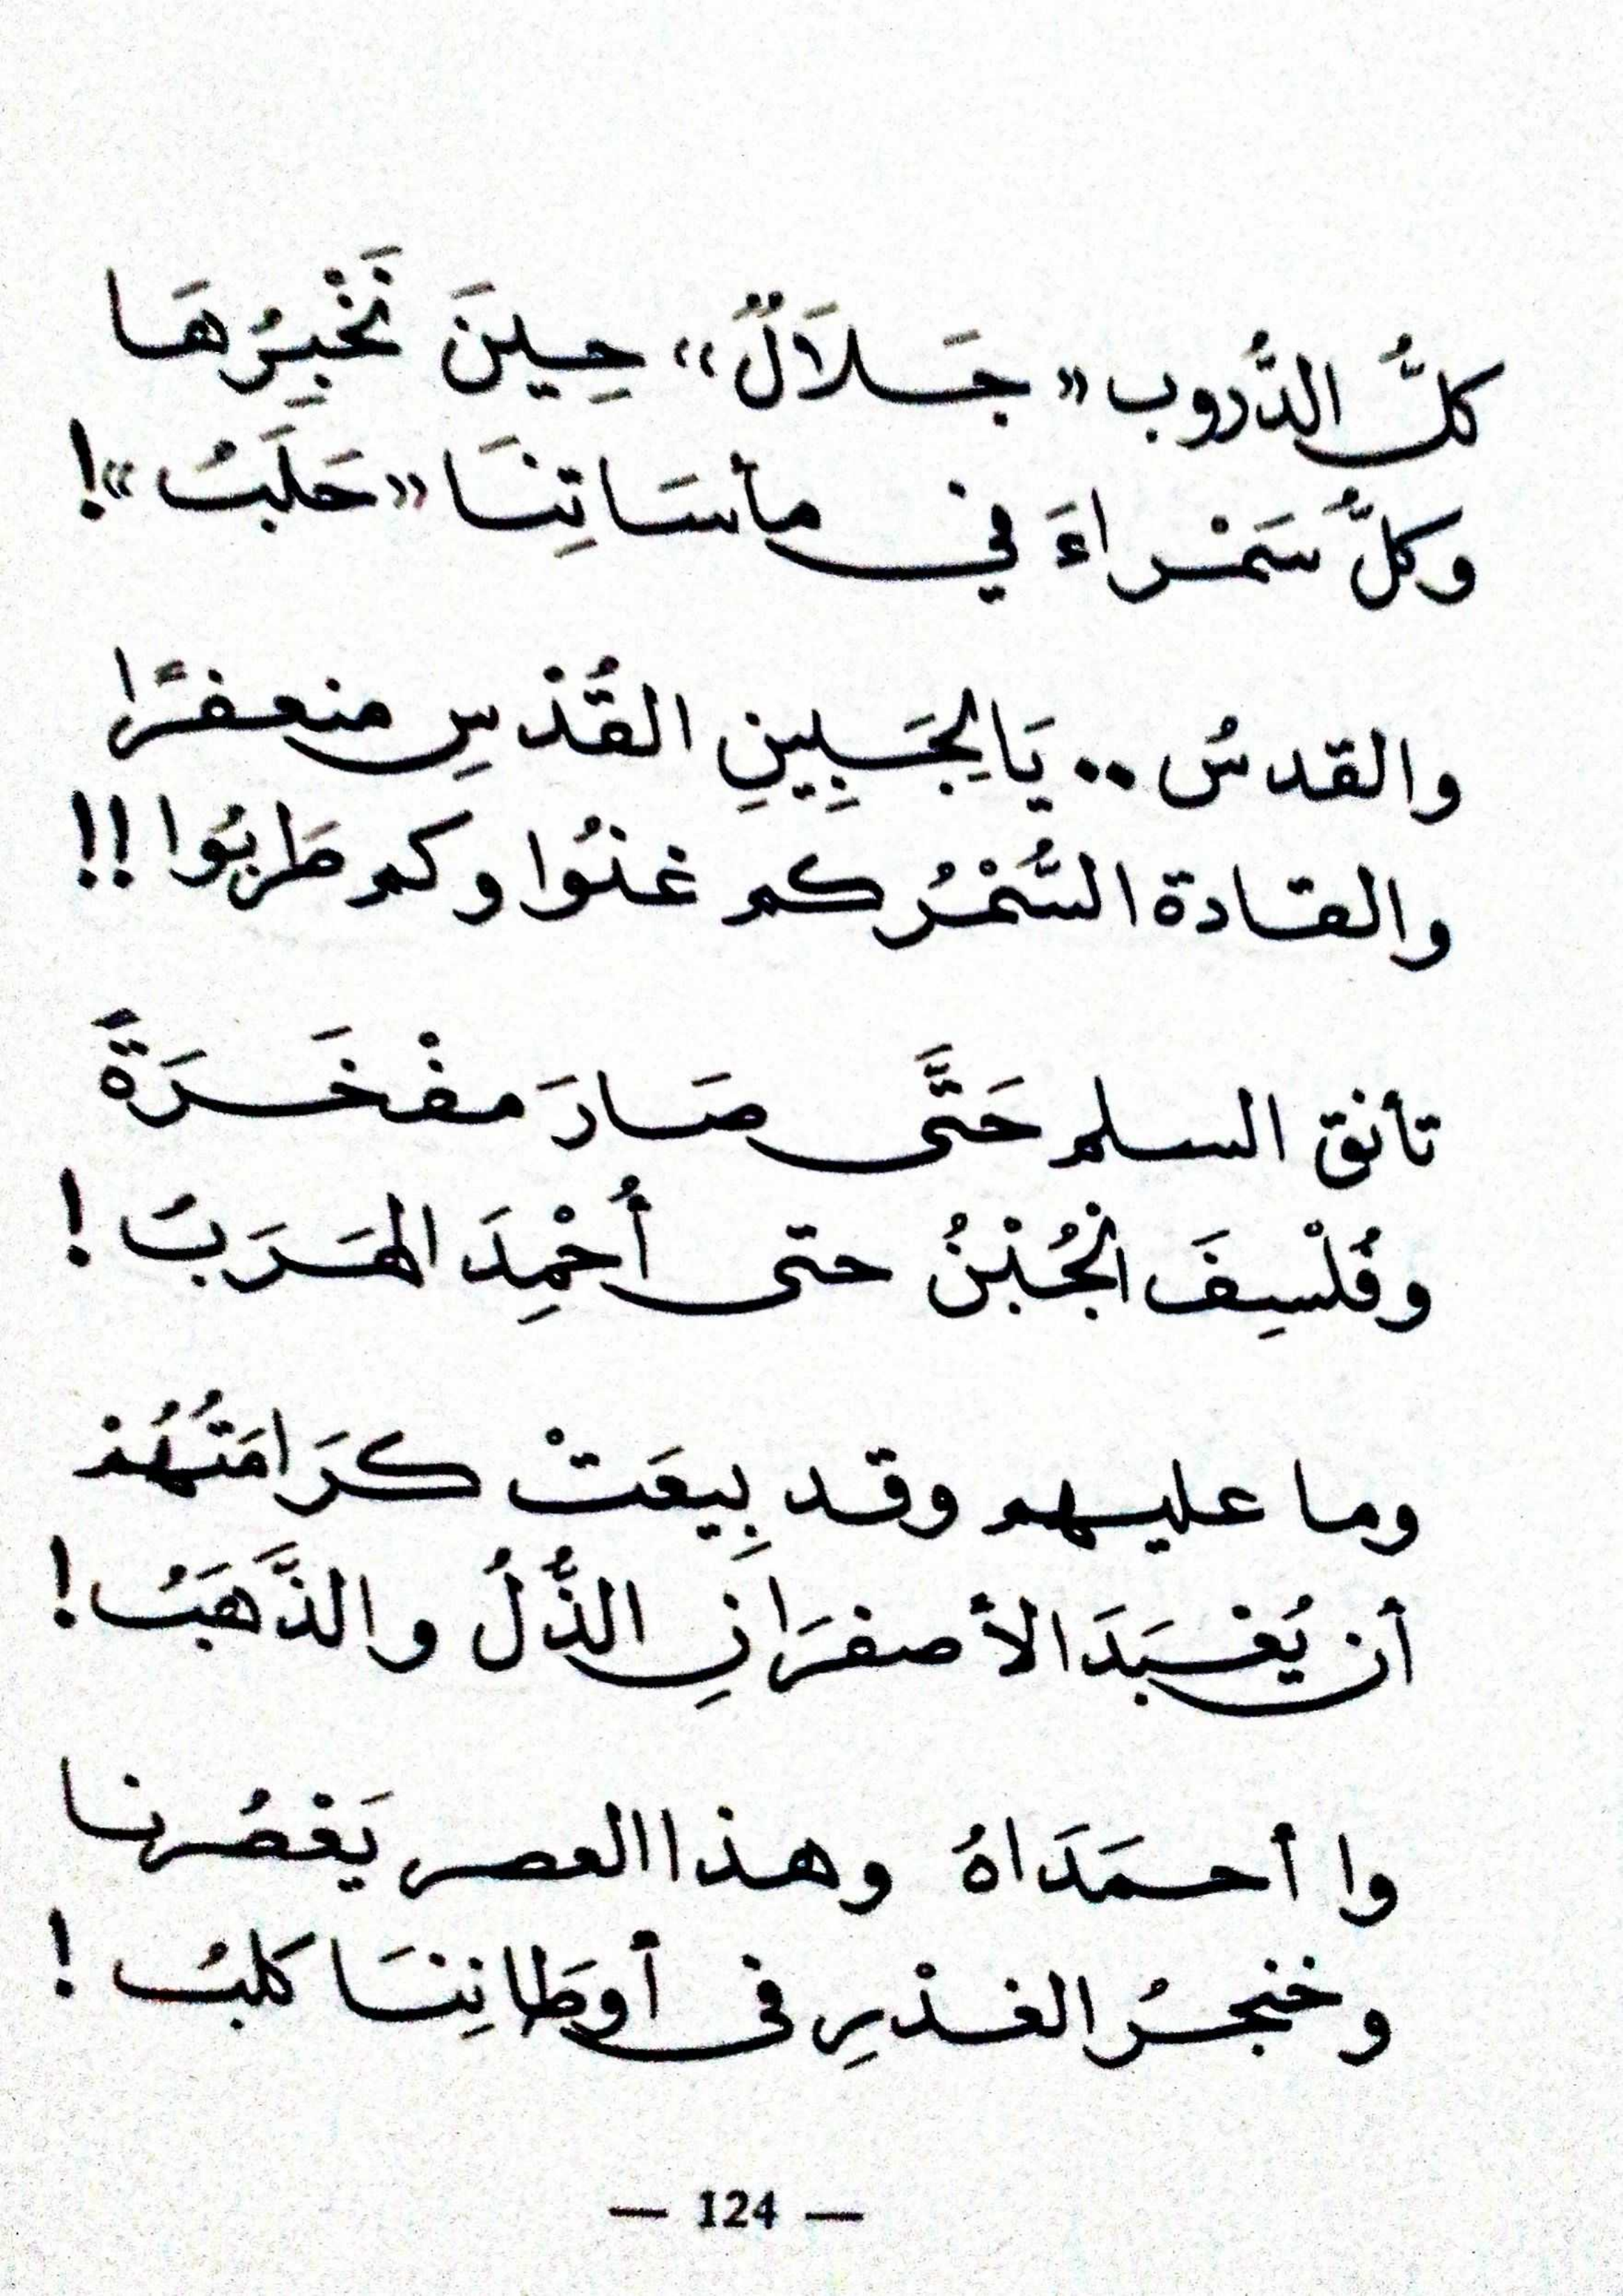 كلُّ الدُّروب «جَلاَلٌ» حِينَ نَخْبِرُهَا
وكلُّ سَمْراءَ في مأسَاتِنَا «حَلَبُ»!
والقدسُ .. يَا لِجَبِينِ القُدْسِ منعفرًا
والقادة السُّمْرُ كم غنُوا وكم طَربُوا !!
تأنق السلم حَتَّى صَارَ مفْخَرَةً
وفُلْسِفَ الجُبْنُ حتى أُحْمِدَ الهَرَبُ !
وما عليهم وقد بِيعَتْ كرَامَتُهُمْ
أن يُعْبَدَ الأصفرَانِ الذُّلُ والذَّهَبُ !
وا أحمَدَاهُ وهذا العصر يَعْصُرنا
وخنجرُ الغدْرِ في أوطَانِنَا كلبُ !
— 124 —